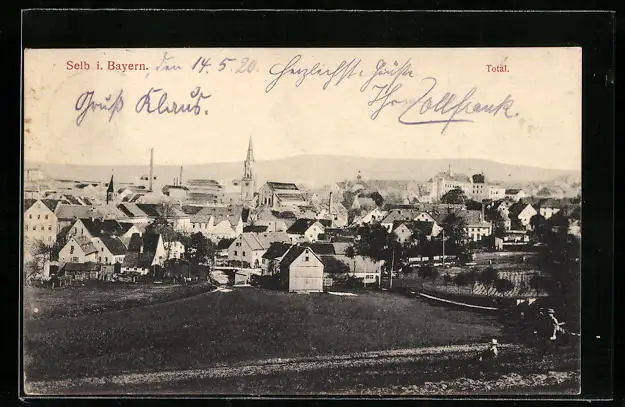 Selb i. Bayern. den 14.5.20. Herzlichst. Grüße Total.
Gruß Klaus. Ihr Zollfrank.